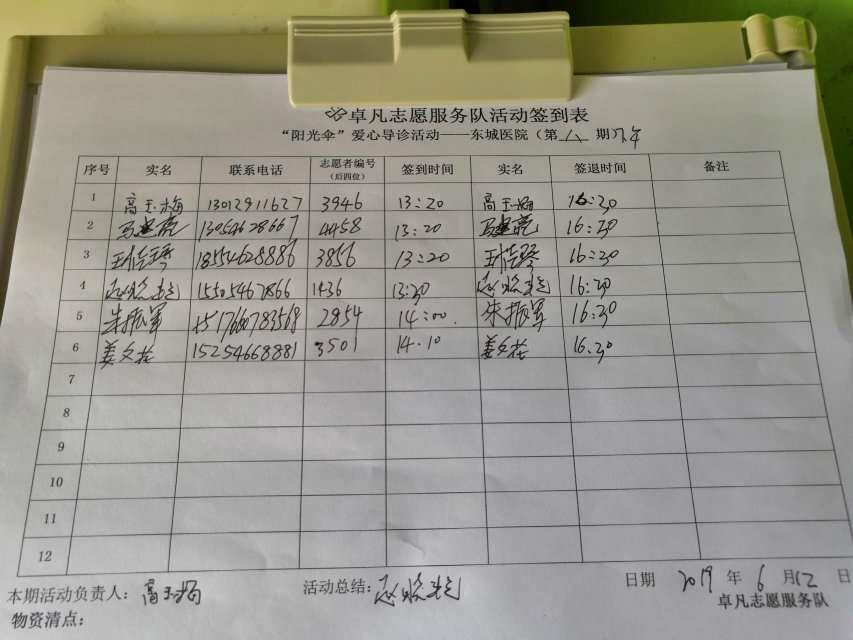 卓凡志愿服务队活动签到表
“阳光伞”爱心导诊活动——东城医院（第 八 期）下午
序号 实名 联系电话 志愿者编号（后四位） 签到时间 实名 签退时间 备注
1 高玉梅 13012911627 3946 13:20 高玉梅 16:30
2 13054628667 4458 13:20 16:30
3 18554628886 3856 13:20 16:30
4 15505467866 1436 13:30 16:30
5 朱振军 2854 14:00 朱振军 16:30
6 姜文花 15254668881 3501 14:10 姜文花 16:30
7
8
9
10
11
12
本期活动负责人：高玉梅 活动总结： 日期 2019 年 6 月 12 日
物资清点： 卓凡志愿服务队